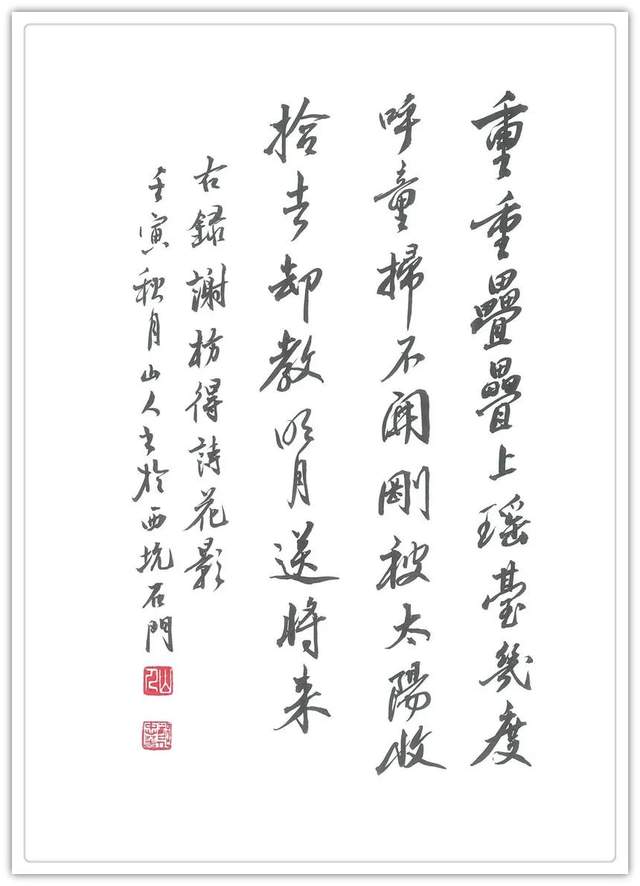 重重疊疊上瑶臺幾度
呼童掃不開剛被太陽收
拾去却教明月送將来
右録謝枋得詩花影
壬寅秋月山人書於西坑石門